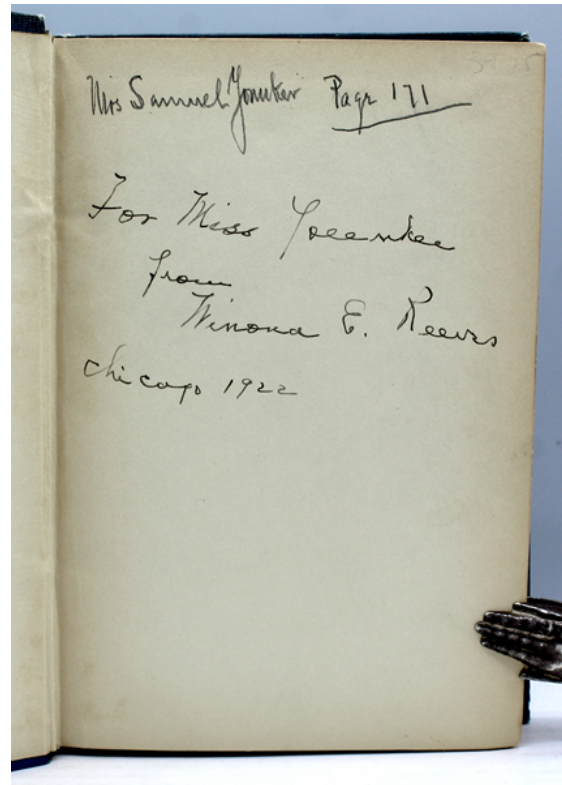 Mrs Samuel Yonker Page 171
For Miss
from
Winona E. Reeves
Chicago 1922